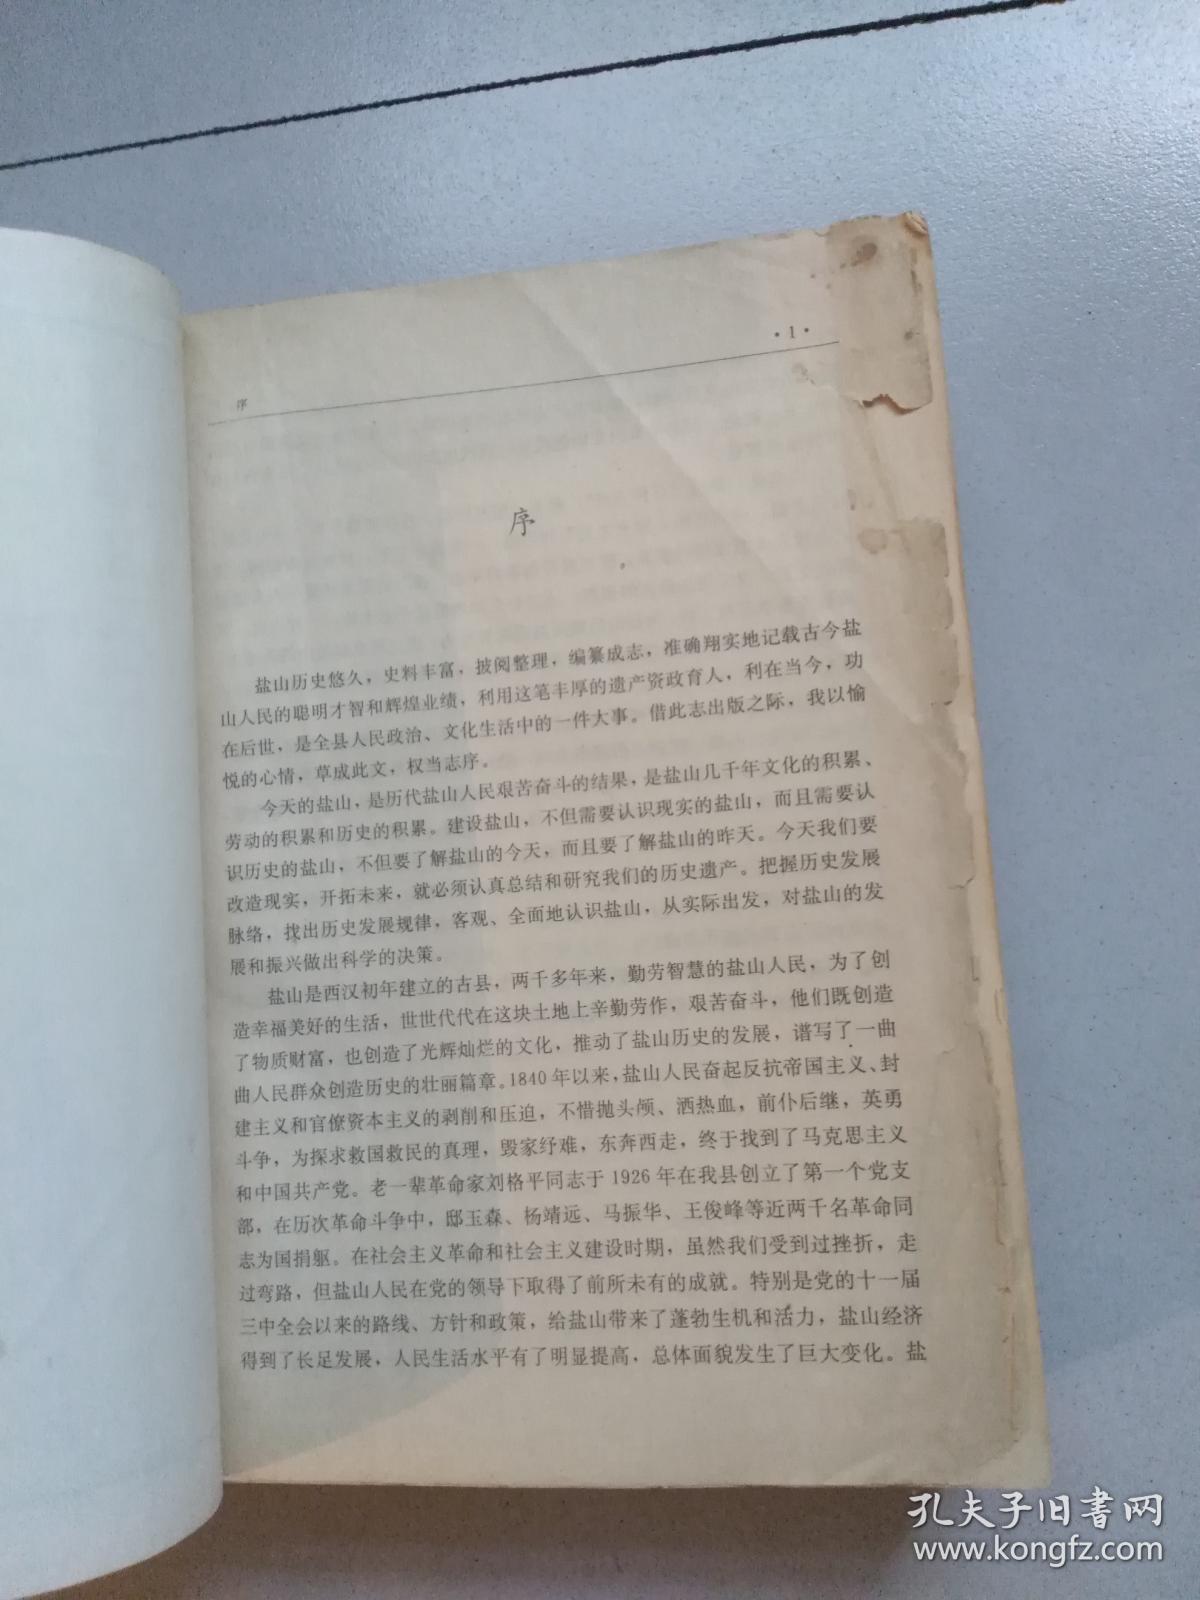 ·1·
序
序
盐山历史悠久，史料丰富，披阅整理，编纂成志，准确翔实地记载古今盐
山人民的聪明才智和辉煌业绩，利用这笔丰厚的遗产资政育人，利在当今，功
在后世，是全县人民政治、文化生活中的一件大事。借此志出版之际，我以愉
悦的心情，草成此文，权当志序。
今天的盐山，是历代盐山人民艰苦奋斗的结果，是盐山几千年文化的积累、
劳动的积累和历史的积累。建设盐山，不但需要认识现实的盐山，而且需要认
识历史的盐山，不但要了解盐山的今天，而且要了解盐山的昨天。今天我们要
改造现实，开拓未来，就必须认真总结和研究我们的历史遗产。把握历史发展
脉络，找出历史发展规律，客观、全面地认识盐山，从实际出发，对盐山的发
展和振兴做出科学的决策。
盐山是西汉初年建立的古县，两千多年来，勤劳智慧的盐山人民，为了创
造幸福美好的生活，世世代代在这块土地上辛勤劳作，艰苦奋斗，他们既创造
了物质财富，也创造了光辉灿烂的文化，推动了盐山历史的发展，谱写了一曲
曲人民群众创造历史的壮丽篇章。1840年以来，盐山人民奋起反抗帝国主义、封
建主义和官僚资本主义的剥削和压迫，不惜抛头颅、洒热血，前仆后继，英勇
斗争，为探求救国救民的真理，毁家纾难，东奔西走，终于找到了马克思主义
和中国共产党。老一辈革命家刘格平同志于1926年在我县创立了第一个党支
部，在历次革命斗争中，邸玉森、杨靖远、马振华、王俊峰等近两千名革命同
志为国捐躯。在社会主义革命和社会主义建设时期，虽然我们受到过挫折，走
过弯路，但盐山人民在党的领导下取得了前所未有的成就。特别是党的十一届
三中全会以来的路线、方针和政策，给盐山带来了蓬勃生机和活力，盐山经济
得到了长足发展，人民生活水平有了明显提高，总体面貌发生了巨大变化。盐
孔夫子旧书网
www.kongfz.com